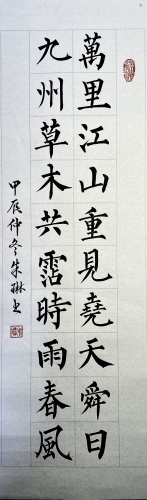 萬里江山重見堯天舜日
九州草木共霑時雨春風
甲辰仲冬朱琳書